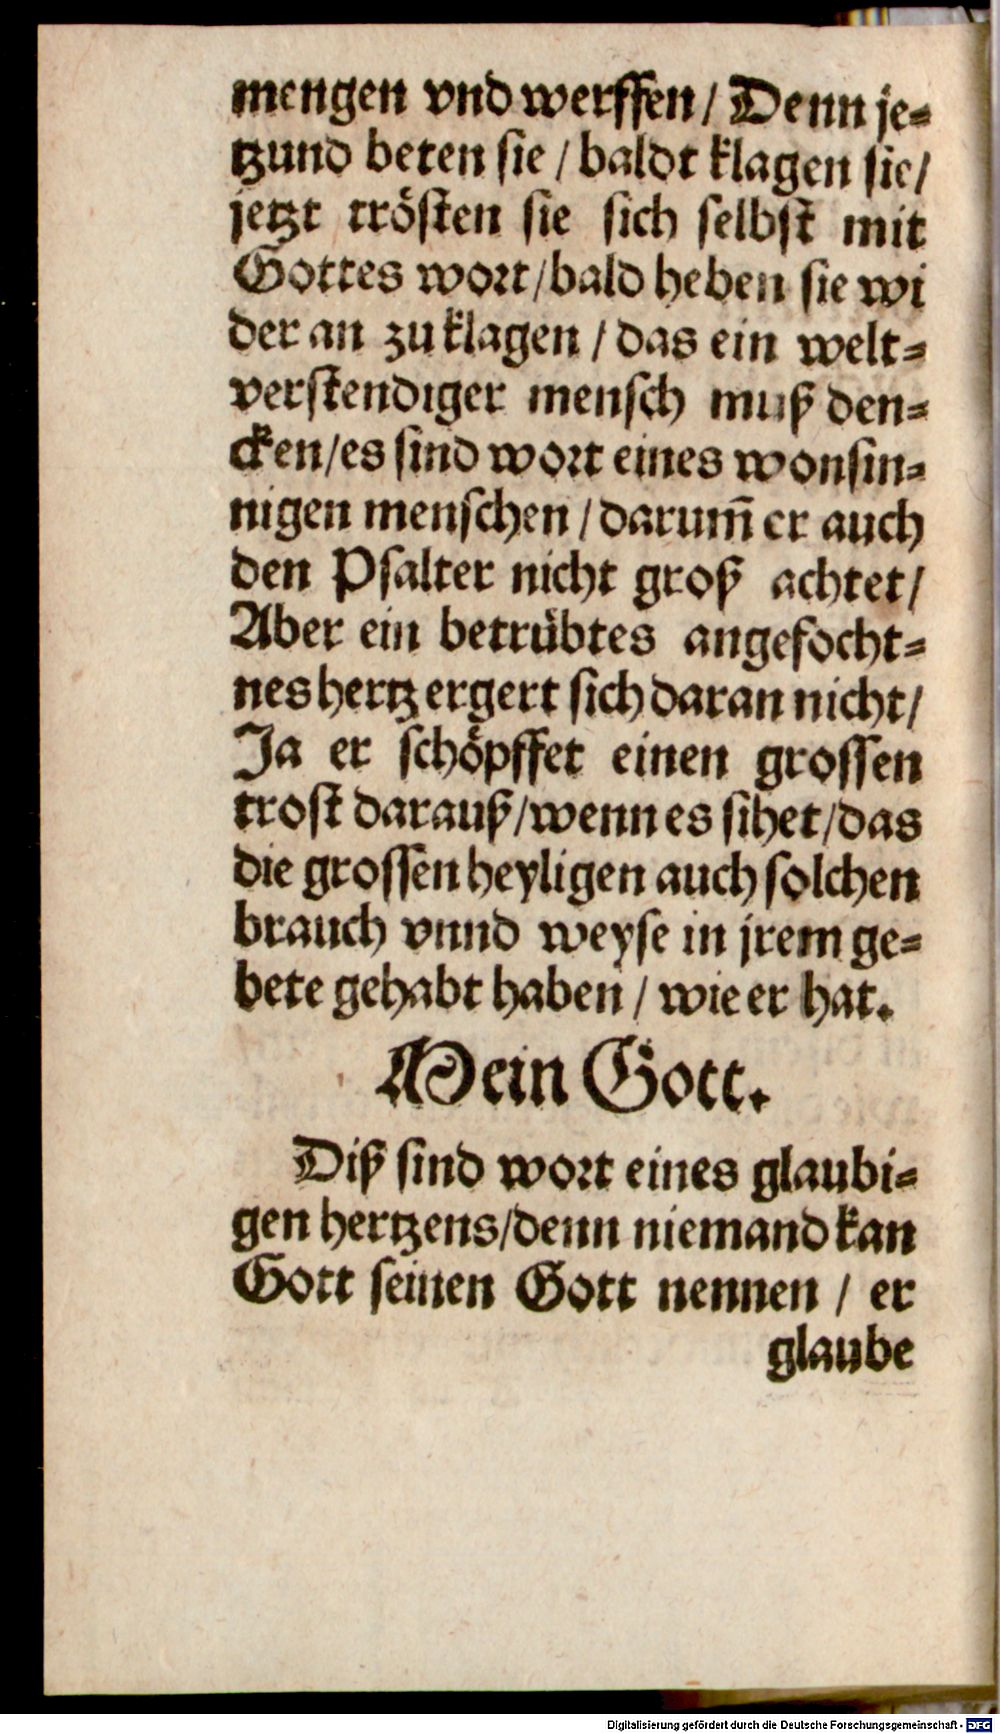 mengen vnd werffen / Denn je⸗
tzund beten sie / baldt klagen sie /
jetzt trösten sie sich selbst mit
Gottes wort / bald heben sie wi
der an zu klagen / das ein welt⸗
verstendiger mensch muß den⸗
cken / es sind wort eines wonsin⸗
nigen menschen / darum̃ er auch
den Psalter nicht groß achtet /
Aber ein betrübtes angefocht⸗
nes hertz ergert sich daran nicht /
Ja er schöpffet einen grossen
trost darauß / wenn es sihet / das
die grossen heyligen auch solchen
brauch vnnd weyse in jrem ge⸗
bete gehabt haben / wie er hat.
Mein Gott.
Diß sind wort eines glaubi⸗
gen hertzens / denn niemand kan
Gott seinen Gott nennen / er
glaube
Digitalisierung gefördert durch die Deutsche Forschungsgemeinschaft - DFG